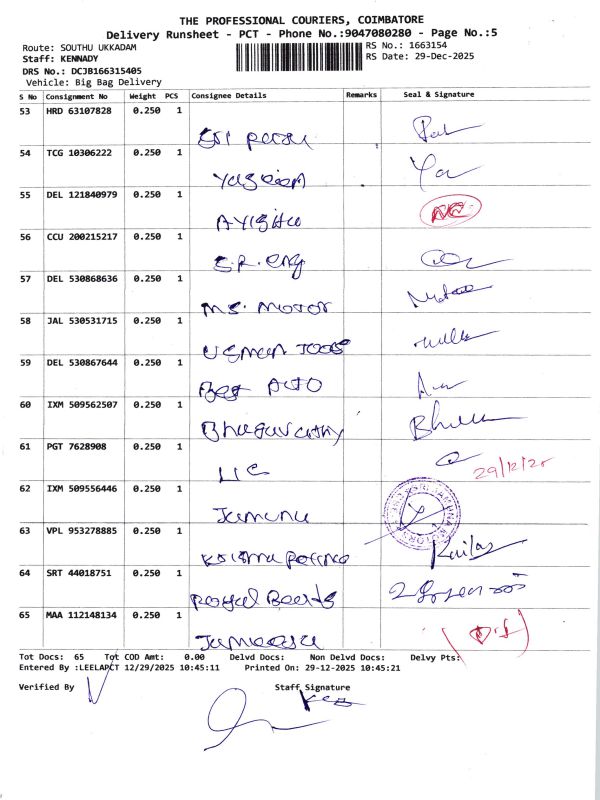 THE PROFESSIONAL COURIERS, COIMBATORE
Delivery Runsheet - PCT - Phone No.:9047080280 - Page No.:5
Route: SOUTHU UKKADAM
RS No.: 1663154
Staff: KENNADY
RS Date: 29-Dec-2025
DRS No.: DCJB166315405
Vehicle: Big Bag Delivery
S No Consignment No Weight PCS Consignee Details Remarks Seal & Signature
53 HRD 63107828 0.250 1
54 TCG 10306222 0.250 1
55 DEL 121840979 0.250 1
56 CCU 200215217 0.250 1
S.R. eng
57 DEL 530868636 0.250 1
MS. MOTOR
58 JAL 530531715 0.250 1
USMAN TOOLS
59 DEL 530867644 0.250 1
Best AUTO
60 IXM 509562507 0.250 1
61 PGT 7628908 0.250 1
LIC 29/12/25
62 IXM 509556446 0.250 1
Jamuna
63 VPL 953278885 0.250 1
Kailas
64 SRT 44018751 0.250 1
65 MAA 112148134 0.250 1
Tot Docs: 65 Tot COD Amt: 0.00 Delvd Docs: Non Delvd Docs: Delvy Pts:
Entered By :LEELAPCT 12/29/2025 10:45:11 Printed On: 29-12-2025 10:45:21
Verified By Staff Signature